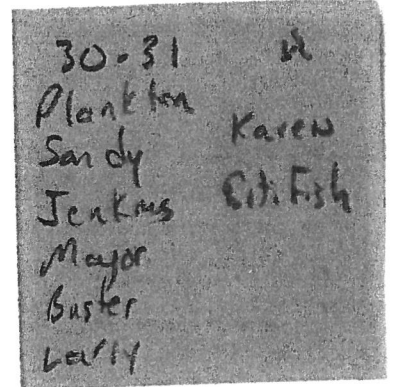 30-31
Plankton
Sandy
Jenkins
Mayor
Buster
Larry
Karen
Fish